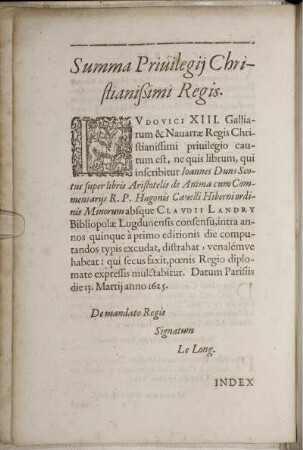 Summa Priuilegij Chri-
stianissimi Regis.
LVDOVICI XIII. Galliarum
rum & Nauarræ Regis Chri-
stianissimi priuilegio cau-
tum est, ne quis librum, qui
inscribitur Ioannes Duns Sco-
tus super libris Aristotelis de Anima cum Com-
mentarijs R. P. Hugonis Cauelli Hiberni ordi-
nis Minorum absque CLAVDII LANDRY
Bibliopolæ Lugdunensis consensu, intra an-
nos quinque à primo editionis die compu-
tandos typis excudat, distrahat, venalémve
habeat: qui secus faxit, pœnis Regio diplo-
mate expressis mulctabitur. Datum Parisiis
die 13. Martij anno 1625.
De mandato Regis
Signatum
Le Long.
INDEX